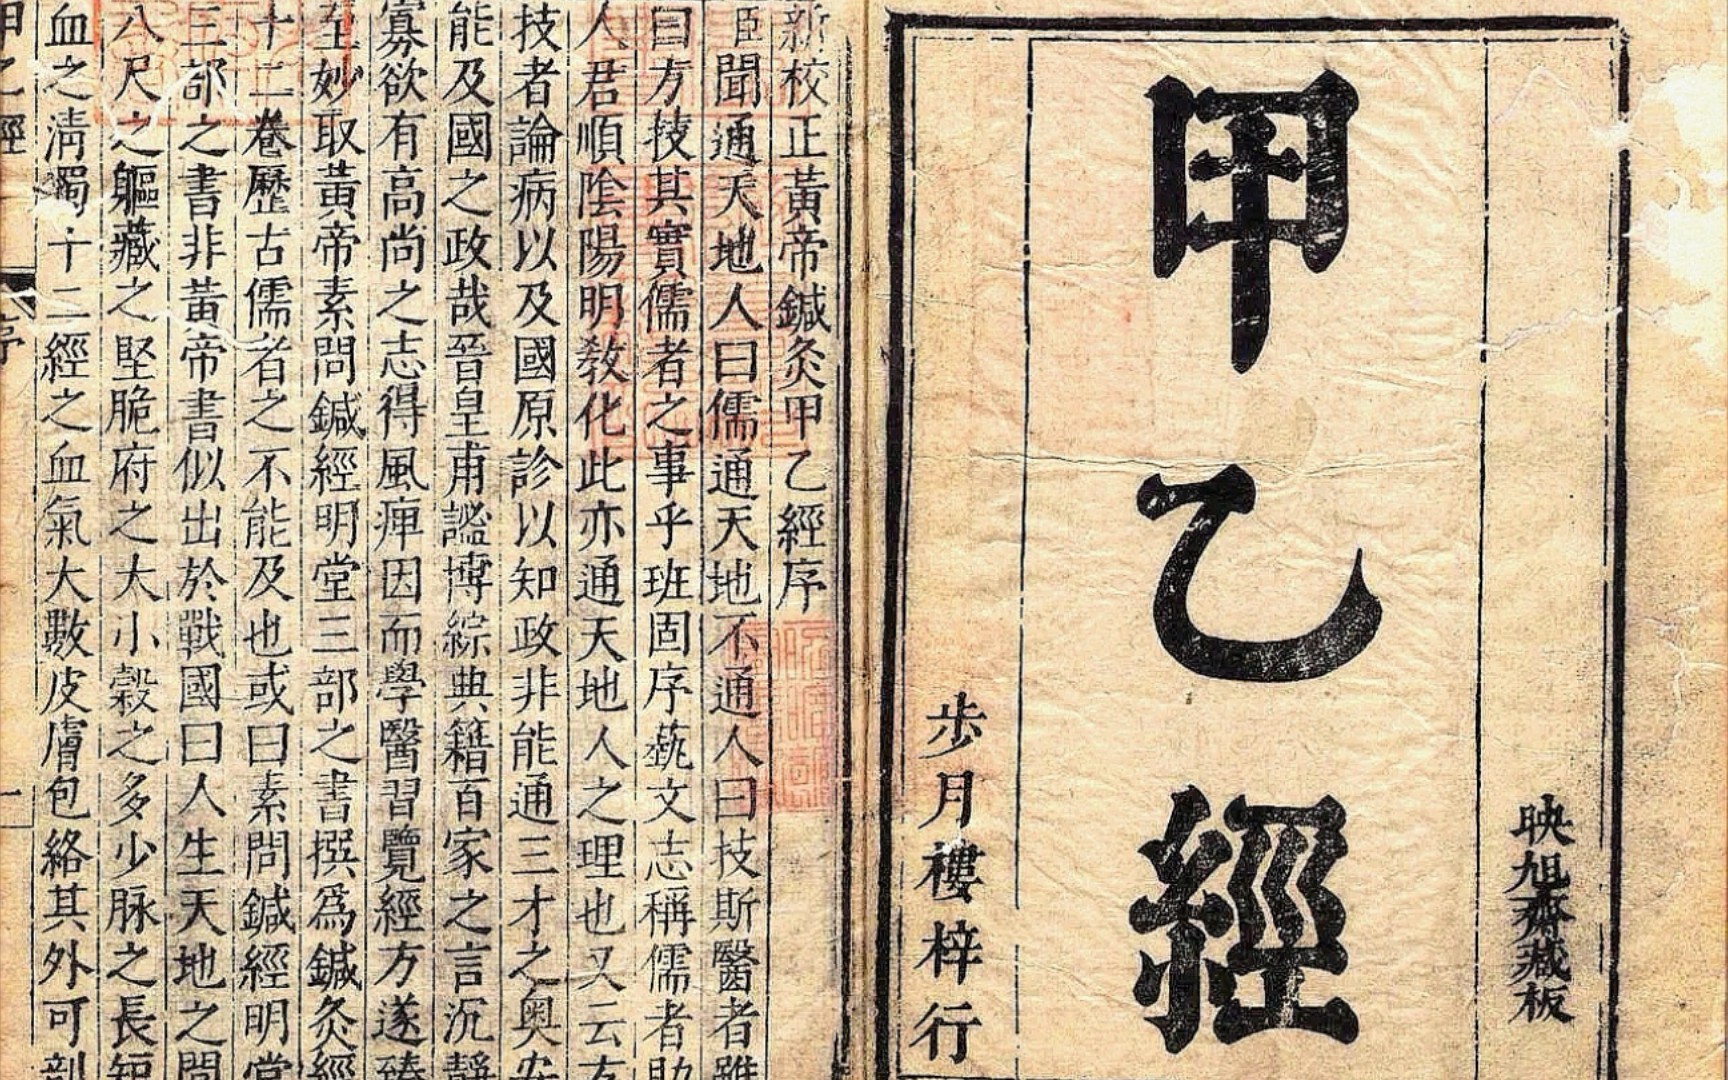 映旭齋藏板
甲乙經
步月樓梓行
新校正黃帝鍼灸甲乙經序
臣聞通天地人曰儒通天地不通人曰技斯醫者雖
曰方技其實儒者之事乎班固序藝文志稱儒者助
人君順陰陽明敎化此亦通天地人之理也又云方
技者論病以及國原診以知政非能通三才之奥安
能及國之政哉晉皇甫謐博綜典籍百家之言沉靜
寡欲有高尚之志得風痺因而學醫習覽經方遂臻
至妙取黃帝素問鍼經明堂三部之書撰爲鍼灸經
十二卷歷古儒者之不能及也或曰素問鍼經明堂
三部之書非黃帝書似出於戰國曰人生天地之間
八尺之軀藏之堅脆府之大小穀之多少脉之長短
血之淸濁十二經之血氣大數皮膚包絡其外可剖
甲乙經 序 一